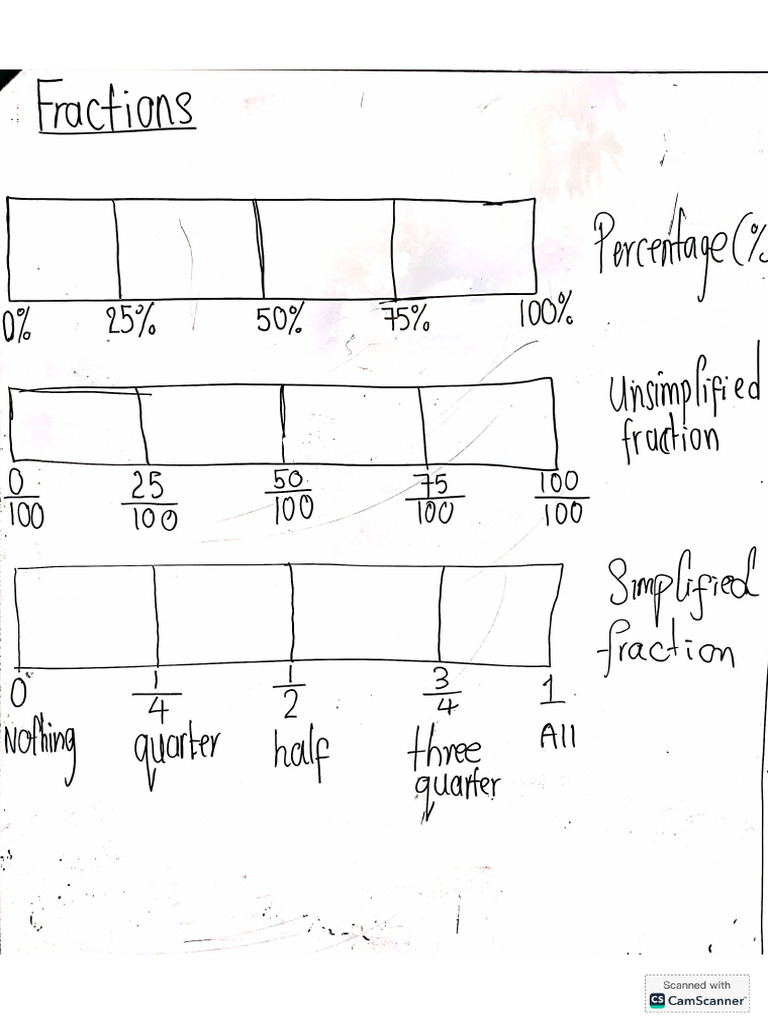 Fractions
Percentage (%
0% 25% 50% 75% 100%
Unsimplified
fraction
0/100 25/100 50/100 75/100 100/100
Simplified
fraction
0 1/4 1/2 3/4 1
Nothing quarter half three quarter All
Scanned with
CS CamScanner